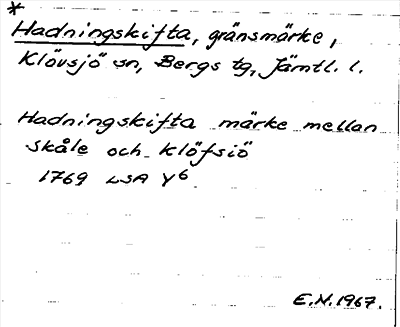 *
Hadningskifta, gränsmärke,
Klövsjö sn, Bergs tg, Jämtl. l.
Hadningskifta märke mellan
Skåle och Klöfsiö
1769 LSA Y6
E.N.1967.